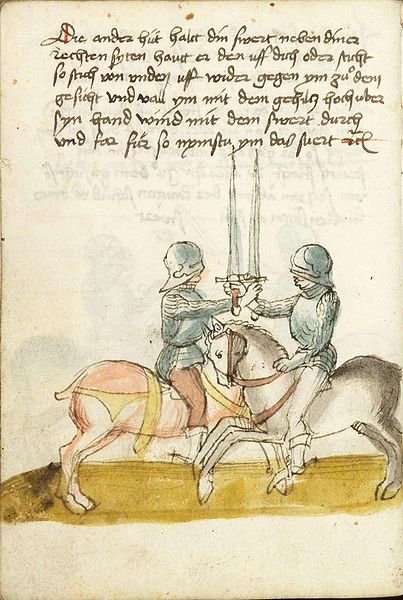 Die ander hůt halt din swert neben diner
rechten syten hawt er den uff dich oder sticht
so stich von unden uff wider gegen ym zu dem
gesicht und vall ym mit dem gehiltz hoch uber
syn hand wind mit dem swert durch
und far für so nymstu ym das swert